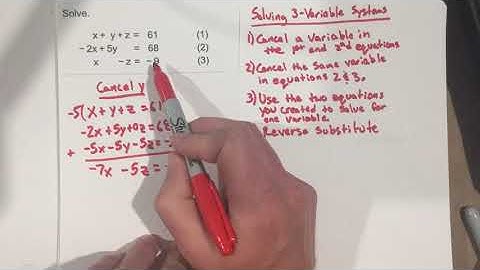 Solve.
x + y + z = 61 (1)
-2x + 5y = 68 (2)
x - z = -9 (3)
Cancel y
-5(x + y + z = 61
-2x + 5y + 0z = 68
+ -5x - 5y - 5z = -
-7x - 5z = -
Solving 3-Variable Systems
1) Cancel a variable in
the 1st and 2nd equations
2) Cancel the same variable
in equations 2 & 3.
3) Use the two equations
you created to solve for
one variable.
Reverse substitute